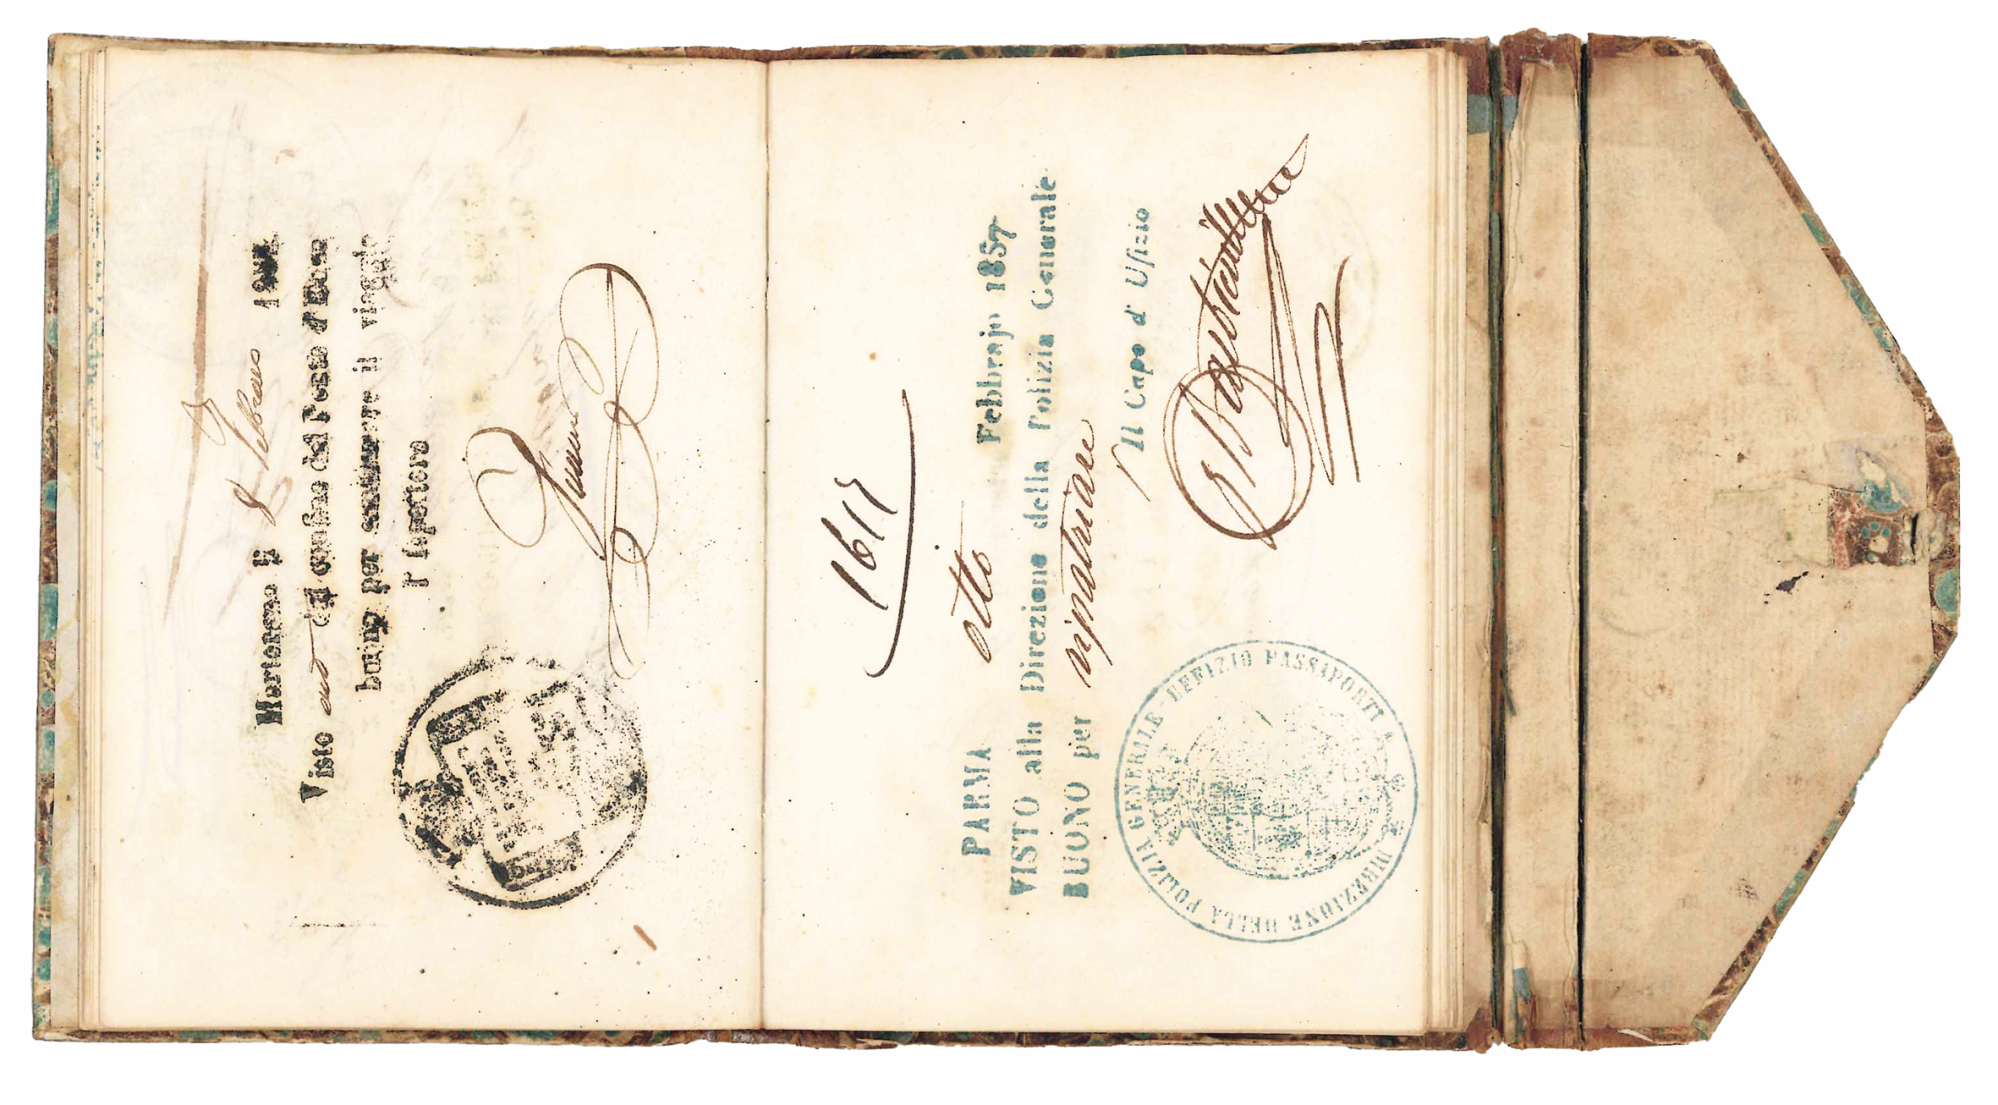 Martorano li 8 Febraro 18
Visto dal confine del Ponte d'Enza
buono per continuare il viaggio
l'Ispettore
1617
PARMA otto Febbrajo 1857
VISTO alla Direzione della Polizia Generale
BUONO per ripatriare
Il Capo d'Ufizio
DIREZIONE DELLA POLIZIA GENERALE - UFFIZIO PASSAPORTI